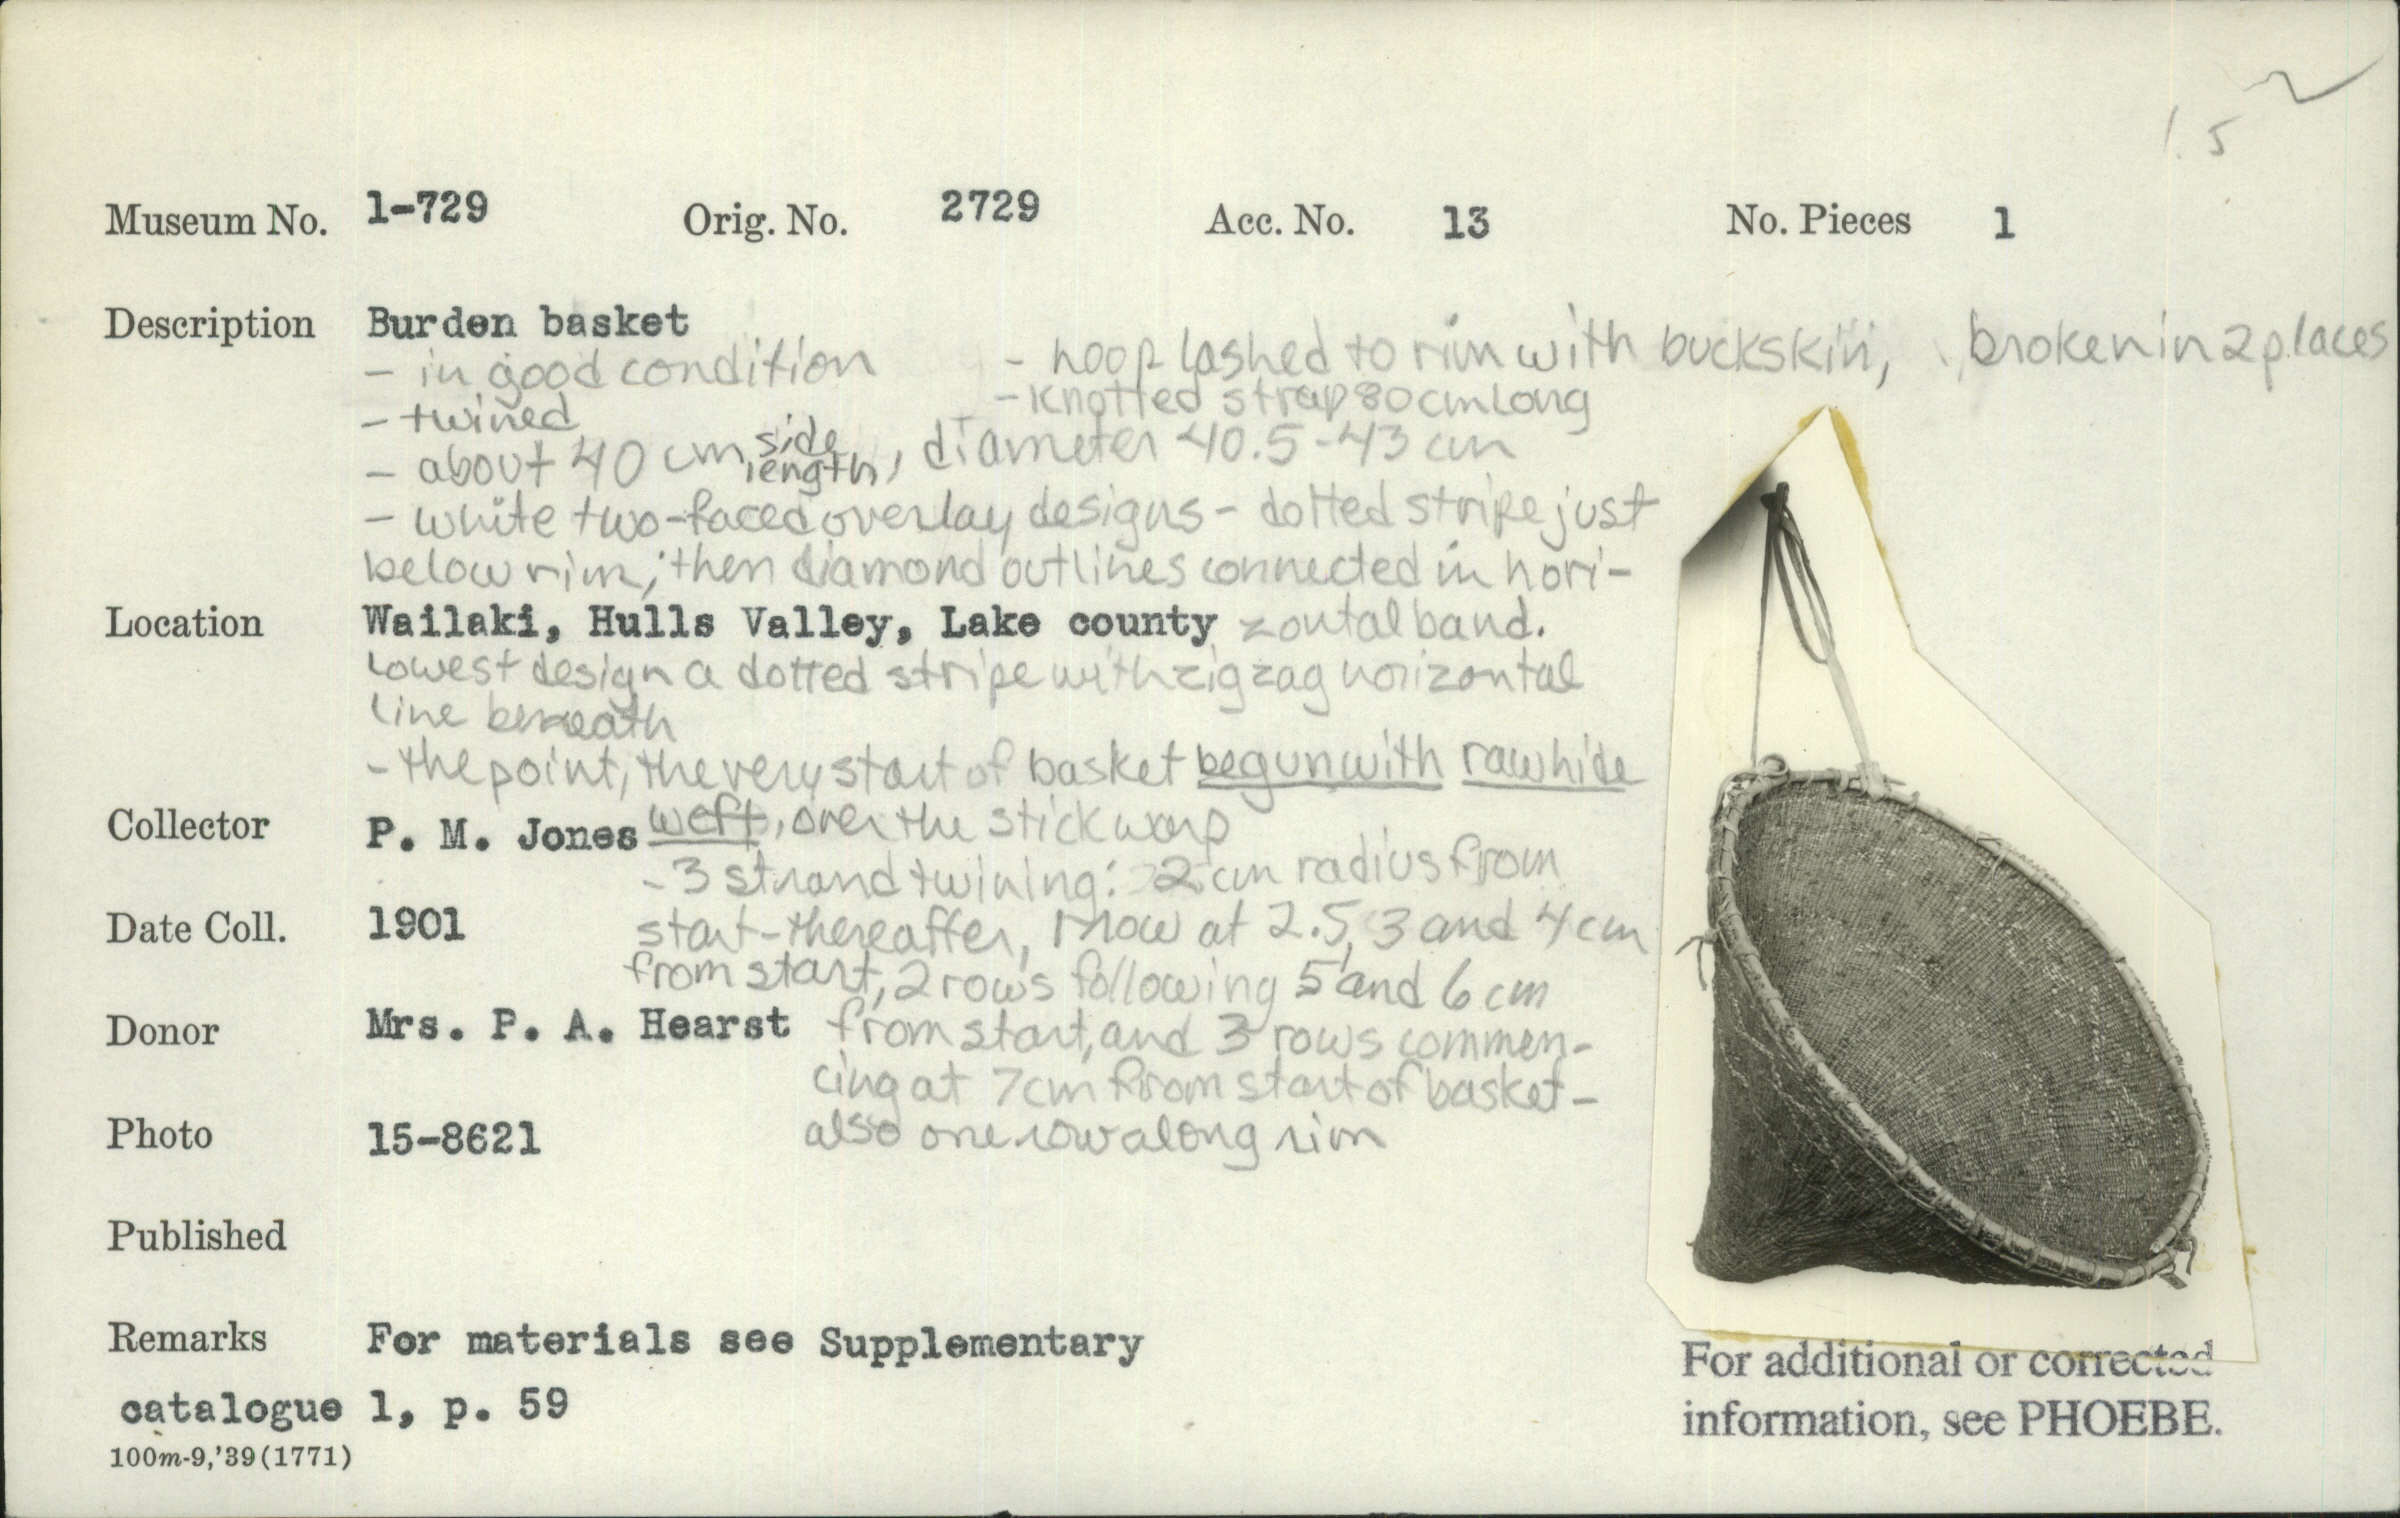 1.5
Museum No. 1-729 Orig. No. 2729 Acc. No. 13 No. Pieces 1
Description Burden basket
- in good condition - hoop lashed to rim with buckskin, broken in 2 places
- twined - knotted strap 80 cm long
- about 40 cm side length, diameter 40.5-43 cm
- white two-faced overlay designs - dotted stripe just
below rim; then diamond outlines connected in hori-
Location Wailaki, Hulls Valley, Lake county zontal band.
Lowest design a dotted stripe with zigzag horizontal
line beneath
- the point, the very start of basket begun with rawhide
Collector P. M. Jones weft, over the stick warp
- 3 strand twining: 2 cm radius from
Date Coll. 1901 start - thereafter, 1 row at 2.5, 3 and 4 cm
from start, 2 rows following 5 and 6 cm
Donor Mrs. P. A. Hearst from start, and 3 rows commen-
cing at 7cm from start of basket -
Photo 15-8621 also one row along rim
Published
Remarks For materials see Supplementary
catalogue 1, p. 59
100m-9,'39(1771)
For additional or corrected
information, see PHOEBE.